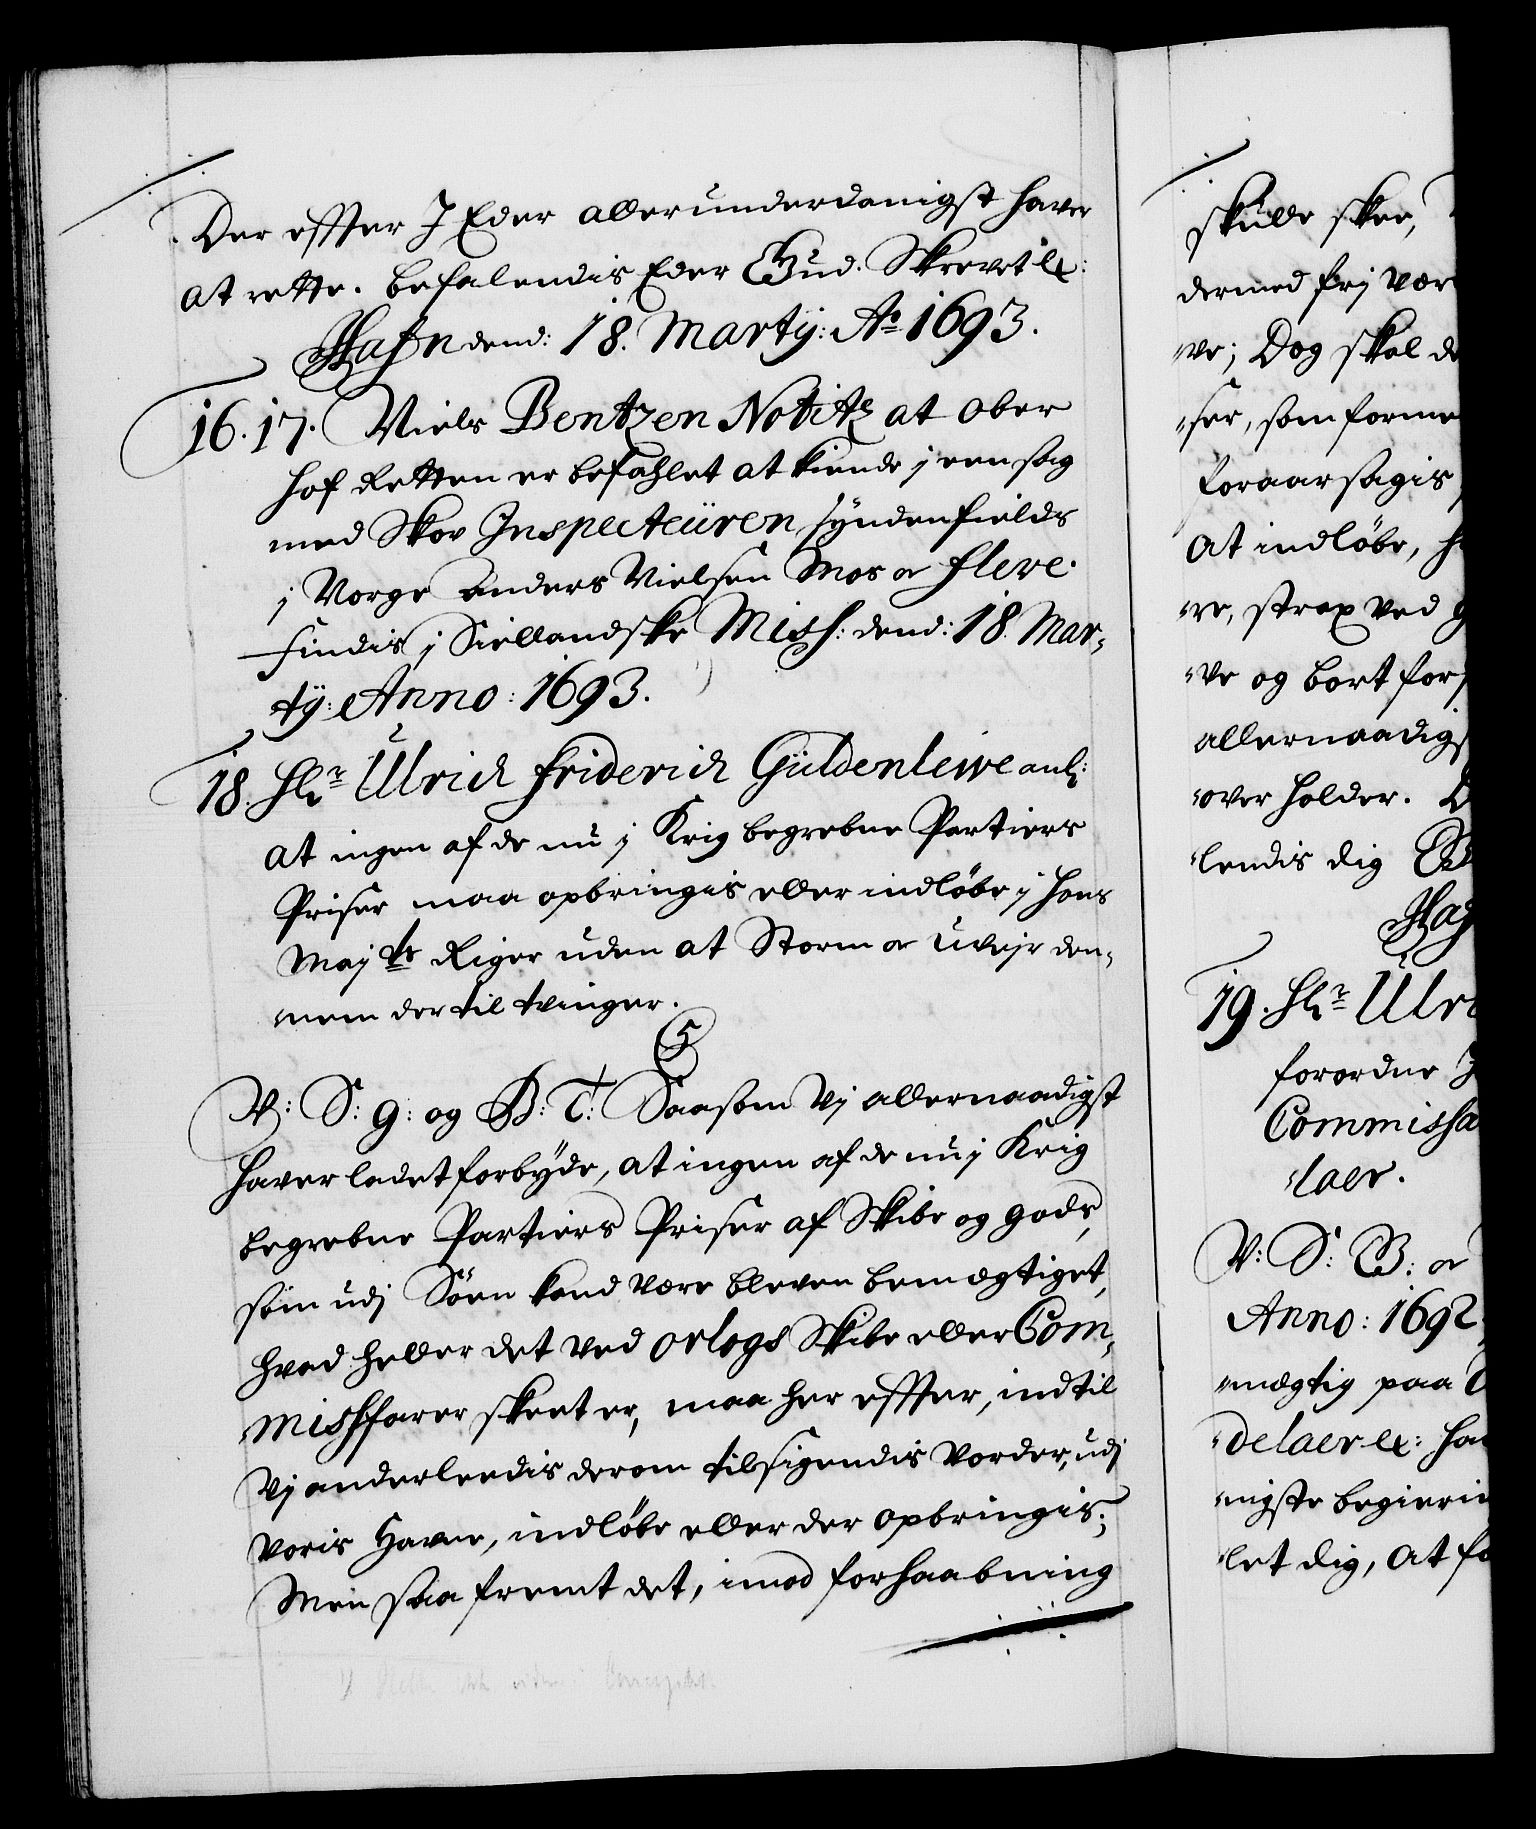 Der effter I Eder allerunderdanigst haver
at rette. Befalendis Eder Gud. Skrevet &c:
Hafn dend: 18. Martij: Ao 1693.
16. 17. Niels Bentzen Notitz at Ober
hof Retten er befahlet at kiende j een sag
med Skov Inspecteüren Syndenfields
j Norge Anders Nielsen Mos or flere.
Findis j Siellandske Miss: dend: 18. Mar-
tij: Anno: 1693.
18. Hr Ulrich Friderich Güldenlewe anl:
at ingen af de nu j Krig begrebne Partiers
Priser maa opbringis eller indløbe j Hans
Mayts Riger uden at Storm or Uvejr den-
nem der til tvinger.
C5
V: S: G: og B: T: Saasom Vj allernaadigst
haver ladet forbyde, at ingen af de nu j Krig
begrebne Partiers Priser af Skibe og gods,
som udj Søen kand være bleven bemægtiget,
hvad heller det ved Orlogs Skibe eller Com-
missfarer skeet er, maa her effter, indtil
Vj anderleedis derom tilsigendis vorder, udj
voris Havne, indløbe eller der opbringis;
Men saa fremt det, imod forhaabning
skulle skee,
dermed frj vær
ve; Dog skal de
ser, som forme
foraarsagis
at indløbe, h
re, strax ved g
ve og bort for
allernaadigs
over holder. D
lendis dig
Haf
19. Hr Ulri
forordne
Commissa
laer.
V: S: G: or
Anno: 1692
mægtig paa
delaer &c: ha
nigste begierin
let dig, at fo